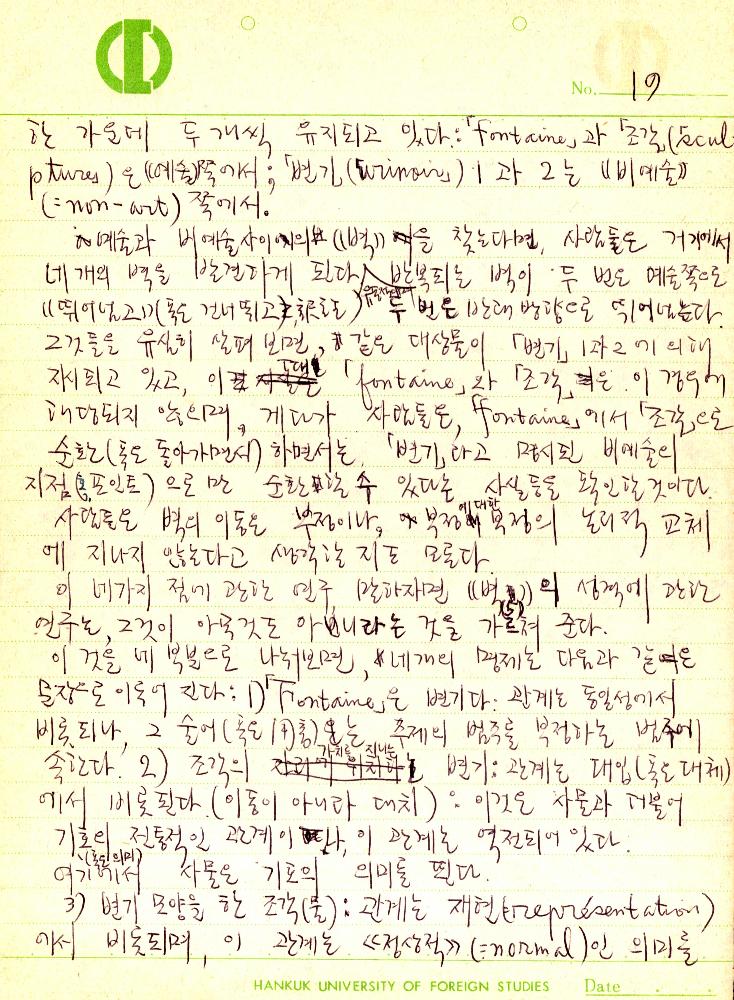 No. 19
한 가운데 두 개씩 유지되고 있다:「Fontaine」과 「조각」(scul-
ptures)은 《예술》쪽에서; 「변기」(urinoirs) 1과 2는 《비예술》
(=non-art) 쪽에서.
예술과 비예술사이의 《벽》을 찾는다면, 사람들은 거기에서
네개의 벽을 발견하게 된다. 반복되는 벽이 두 번은 예술쪽으로
《뛰어넘고》(혹은 건너뛰고) 두 번은 반대 방향으로 뛰어넘는다.
그것들을 유심히 살펴보면, 같은 대상물이 「변기」 1과 2에 의해
지시되고 있고, 이 「fontaine」와 「조각」은 이 경우에
해당되지 않으며, 게다가 사람들은, 「fontaine」에서 「조각」으로
순환(혹은 돌아가면서)하면서는, 「변기」라고 명시된 비예술의
지점(혹 포인트)으로만 순환할 수 있다는 사실등을 확인할것이다.
사람들은 벽의 이동은 부정이나, 부정에 대한 부정의 논리적 교체
에 지나지 않는다고 생각할 지도 모른다.
이 네가지 점에 관한 연구 말하자면 《벽》의 성격에 관한
연구는, 그것이 아무것도 아니라는 것을 가르쳐 준다.(5)
이 것을 네 부분으로 나눠보면, 네개의 명제는 다음과 같은
문장으로 이루어 진다: 1)「Fontaine」은 변기다: 관계는 동일성에서
비롯되나, 그 술어(혹은 )는 주제의 범주를 부정하는 범주에
속한다. 2) 조각의 가치를 지니는 변기: 관계는 대입(혹은 대체)
에서 비롯된다.(이동이 아니라 대치): 이것은 사물과 더불어
기호의 전통적인 관계이나, 이 관계는 역전되어 있다.
여기에서 사물은 기호의 (혹은 의미) 의미를 띈다.
3) 변기 모양을 한 조각(물): 관계는 재현(représentation)
에서 비롯되며, 이 관계는 《정상적》(=normal)인 의미를
HANKUK UNIVERSITY OF FOREIGN STUDIES Date . .